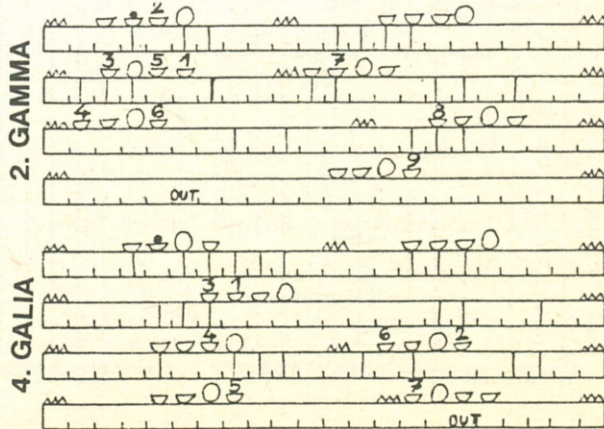 2. GAMMA
2
3 5 1 7
4 6 8
9
OUT.
4. GALIA
3 1
4 6 2
5 7
OUT